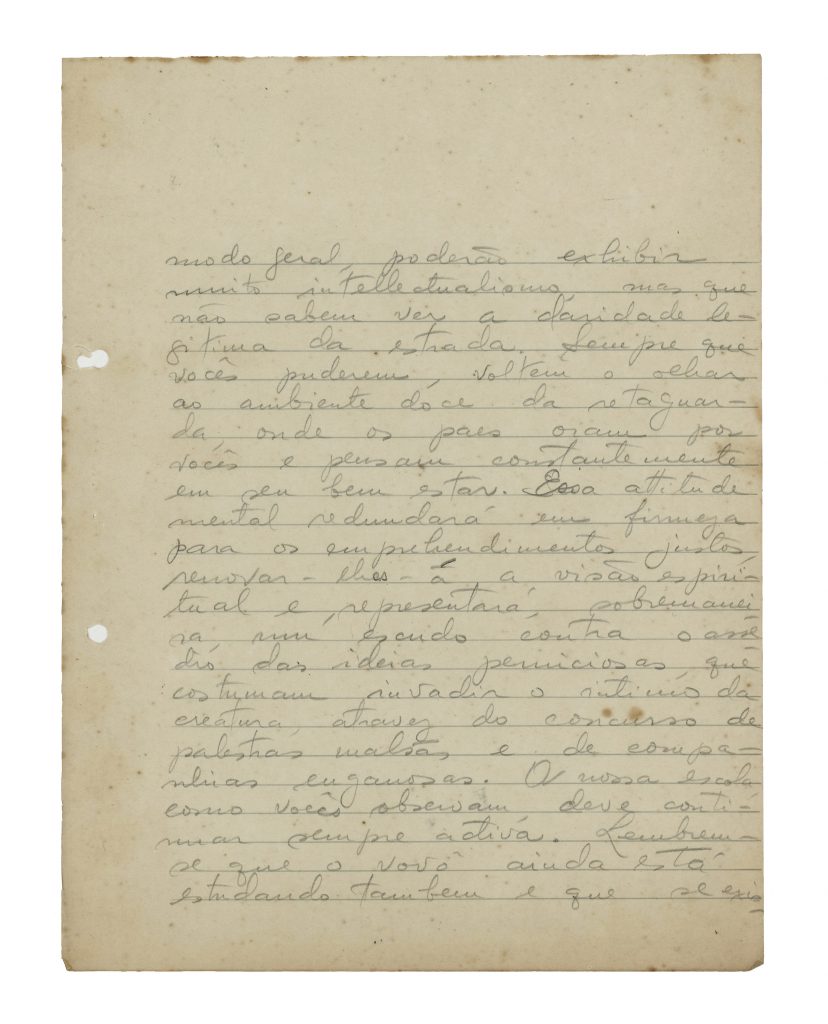 modo geral, poderão exhibir
muito intellectualismo, mas que
não sabem ver a claridade le-
gitima da estrada. Sempre que
vocês puderem, voltem o olhar
ao ambiente dôce da retaguar-
da, onde os paes oram por
vocês e pensam constantemente
em seu bem estar. Essa attitude
mental redundará em firmeza
para os emprehendimentos justos,
renovar-lhes-á a visão espiri-
tual e representará, sobremanei-
ra, um escudo contra o assé-
dio das ideias perniciosas que
costumam invadir o intimo da
creatura, atravez do concurso de
palestras malsãs e de compa-
nhias enganosas. A nossa escola
como vocês observam deve conti-
nuar sempre activa. Lembrem-
se que o vovô ainda está
estudando tambem e que se exis-